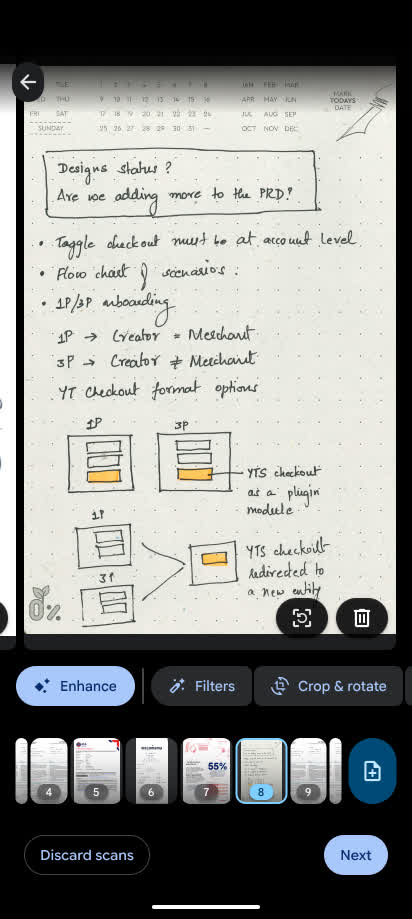 TUE 1 2 3 4 5 6 7 8 JAN FEB MAR
WED THU 9 10 11 12 13 14 15 16 APR MAY JUN
FRI SAT 17 18 19 20 21 22 23 24 JUL AUG SEP
SUNDAY 25 26 27 28 29 30 31 — OCT NOV DEC
MARK
TODAYS
DATE
Designs status?
Are we adding more to the PRD?
• Toggle checkout must be at account level
• Flow chart of scenarios.
• 1P/3P onboarding
1P → Creator = Merchant
3P → Creator ≠ Merchant
YT Checkout format options
1P
3P
YTS checkout
as a plugin
module
1P
3P
YTS checkout
redirected to
a new entity
0%
Enhance
Filters
Crop & rotate
4
5
6
55%
7
8
9
Discard scans
Next